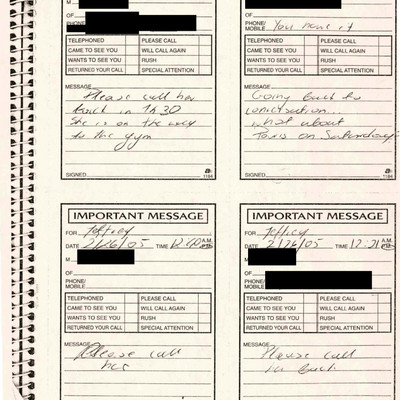 M
OF
PHONE/
MOBILE
TELEPHONED PLEASE CALL
CAME TO SEE YOU WILL CALL AGAIN
WANTS TO SEE YOU RUSH
RETURNED YOUR CALL SPECIAL ATTENTION
MESSAGE
Please call her
back in 1h30
She is on the way
to the gym
SIGNED
1184
OF
PHONE/
MOBILE You have it
TELEPHONED PLEASE CALL
CAME TO SEE YOU WILL CALL AGAIN
WANTS TO SEE YOU RUSH
RETURNED YOUR CALL SPECIAL ATTENTION
MESSAGE
Going back to
what about
Paris on Saturday?
SIGNED
1184
IMPORTANT MESSAGE
FOR Jeffrey
DATE 2/26/05 TIME A.M.
M
OF
PHONE/
MOBILE
TELEPHONED PLEASE CALL
CAME TO SEE YOU WILL CALL AGAIN
WANTS TO SEE YOU RUSH
RETURNED YOUR CALL SPECIAL ATTENTION
MESSAGE
Please call
her
IMPORTANT MESSAGE
FOR Jeffrey
DATE 2/26/05 TIME A.M.
M
OF
PHONE/
MOBILE
TELEPHONED PLEASE CALL
CAME TO SEE YOU WILL CALL AGAIN
WANTS TO SEE YOU RUSH
RETURNED YOUR CALL SPECIAL ATTENTION
MESSAGE
Please call
back